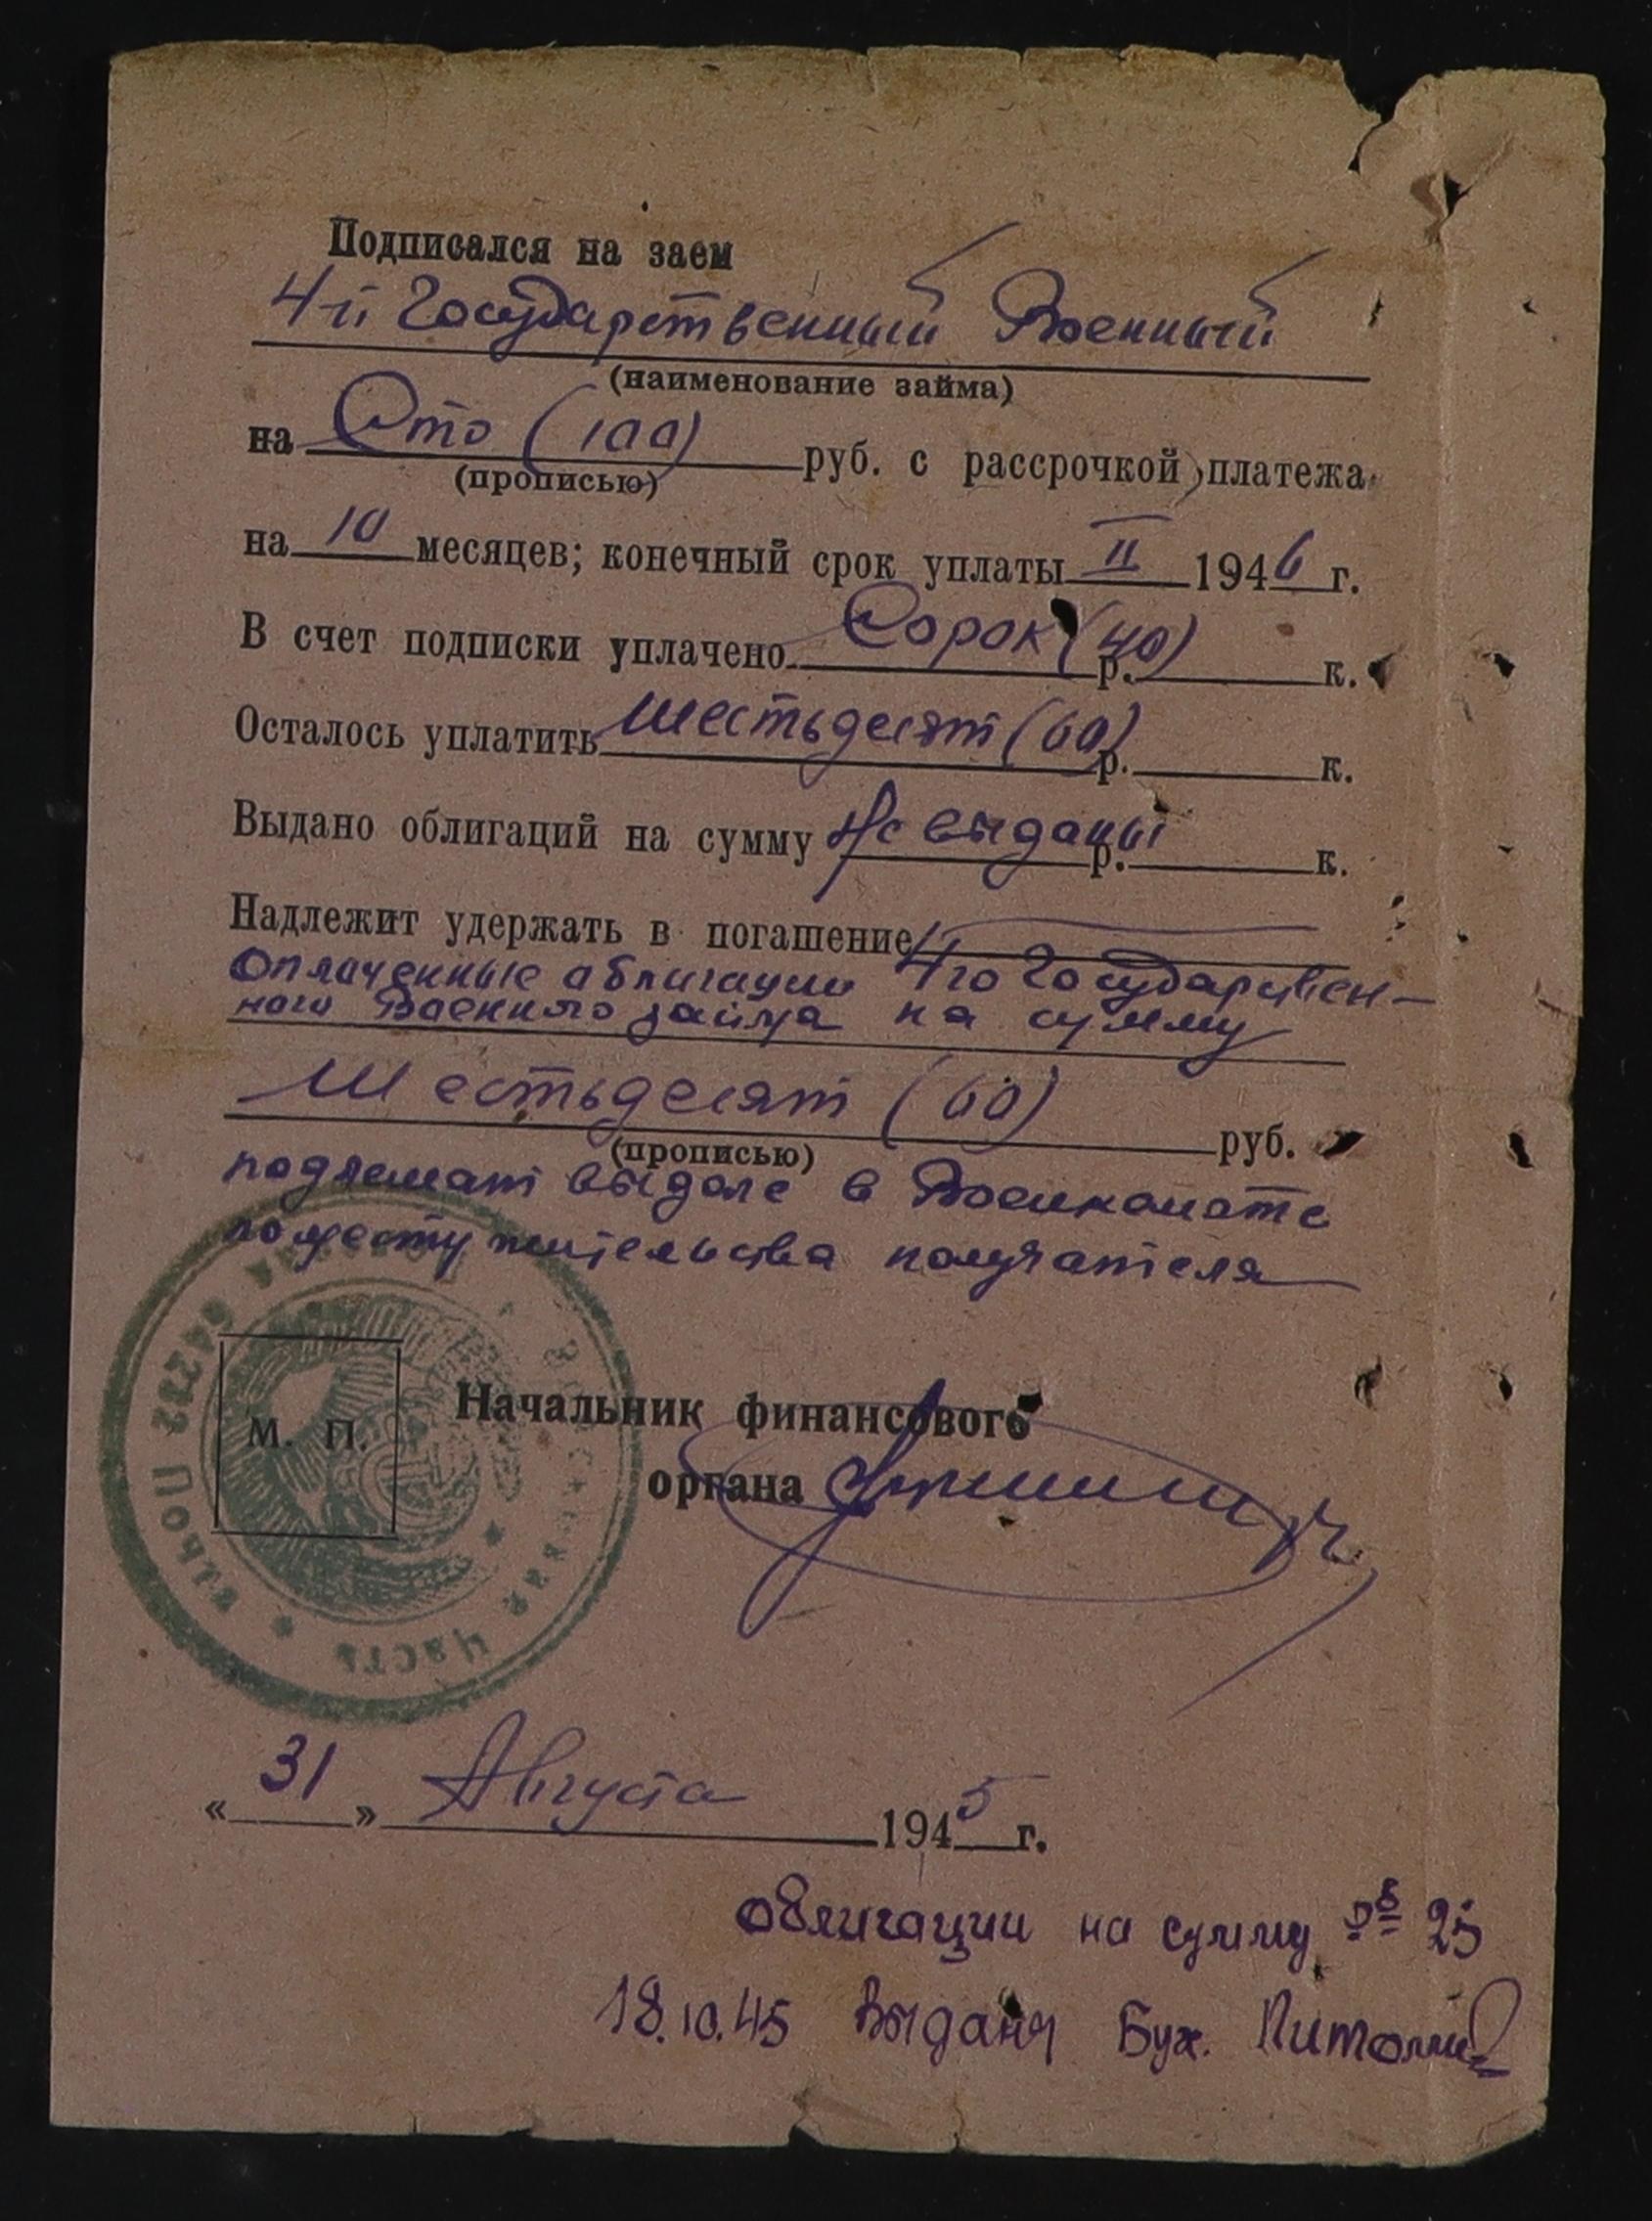 Подписался на заем
4-й Государственный Военный
(наименование займа)
на Сто (100) руб. с рассрочкой платежа
(прописью)
на 10 месяцев; конечный срок уплаты II 1946 г.
В счет подписки уплачено Сорок (40) р. к.
Осталось уплатить Шестьдесят (60) р. к.
Выдано облигаций на сумму Не выданы р. к.
Надлежит удержать в погашение
Оплаченные аблигации 4го Государствен-
ного Военного займа на сумму
Шестьдесят (60) руб.
(прописью)
подлежат выдаче в Военкомате
по месту жительства получателя
М. П.
Начальник финансового
органа
Войсковая часть 64232 Польова
«31» Августа 1945 г.
облигации на сумму 25
18.10.45 Выданы Бух.